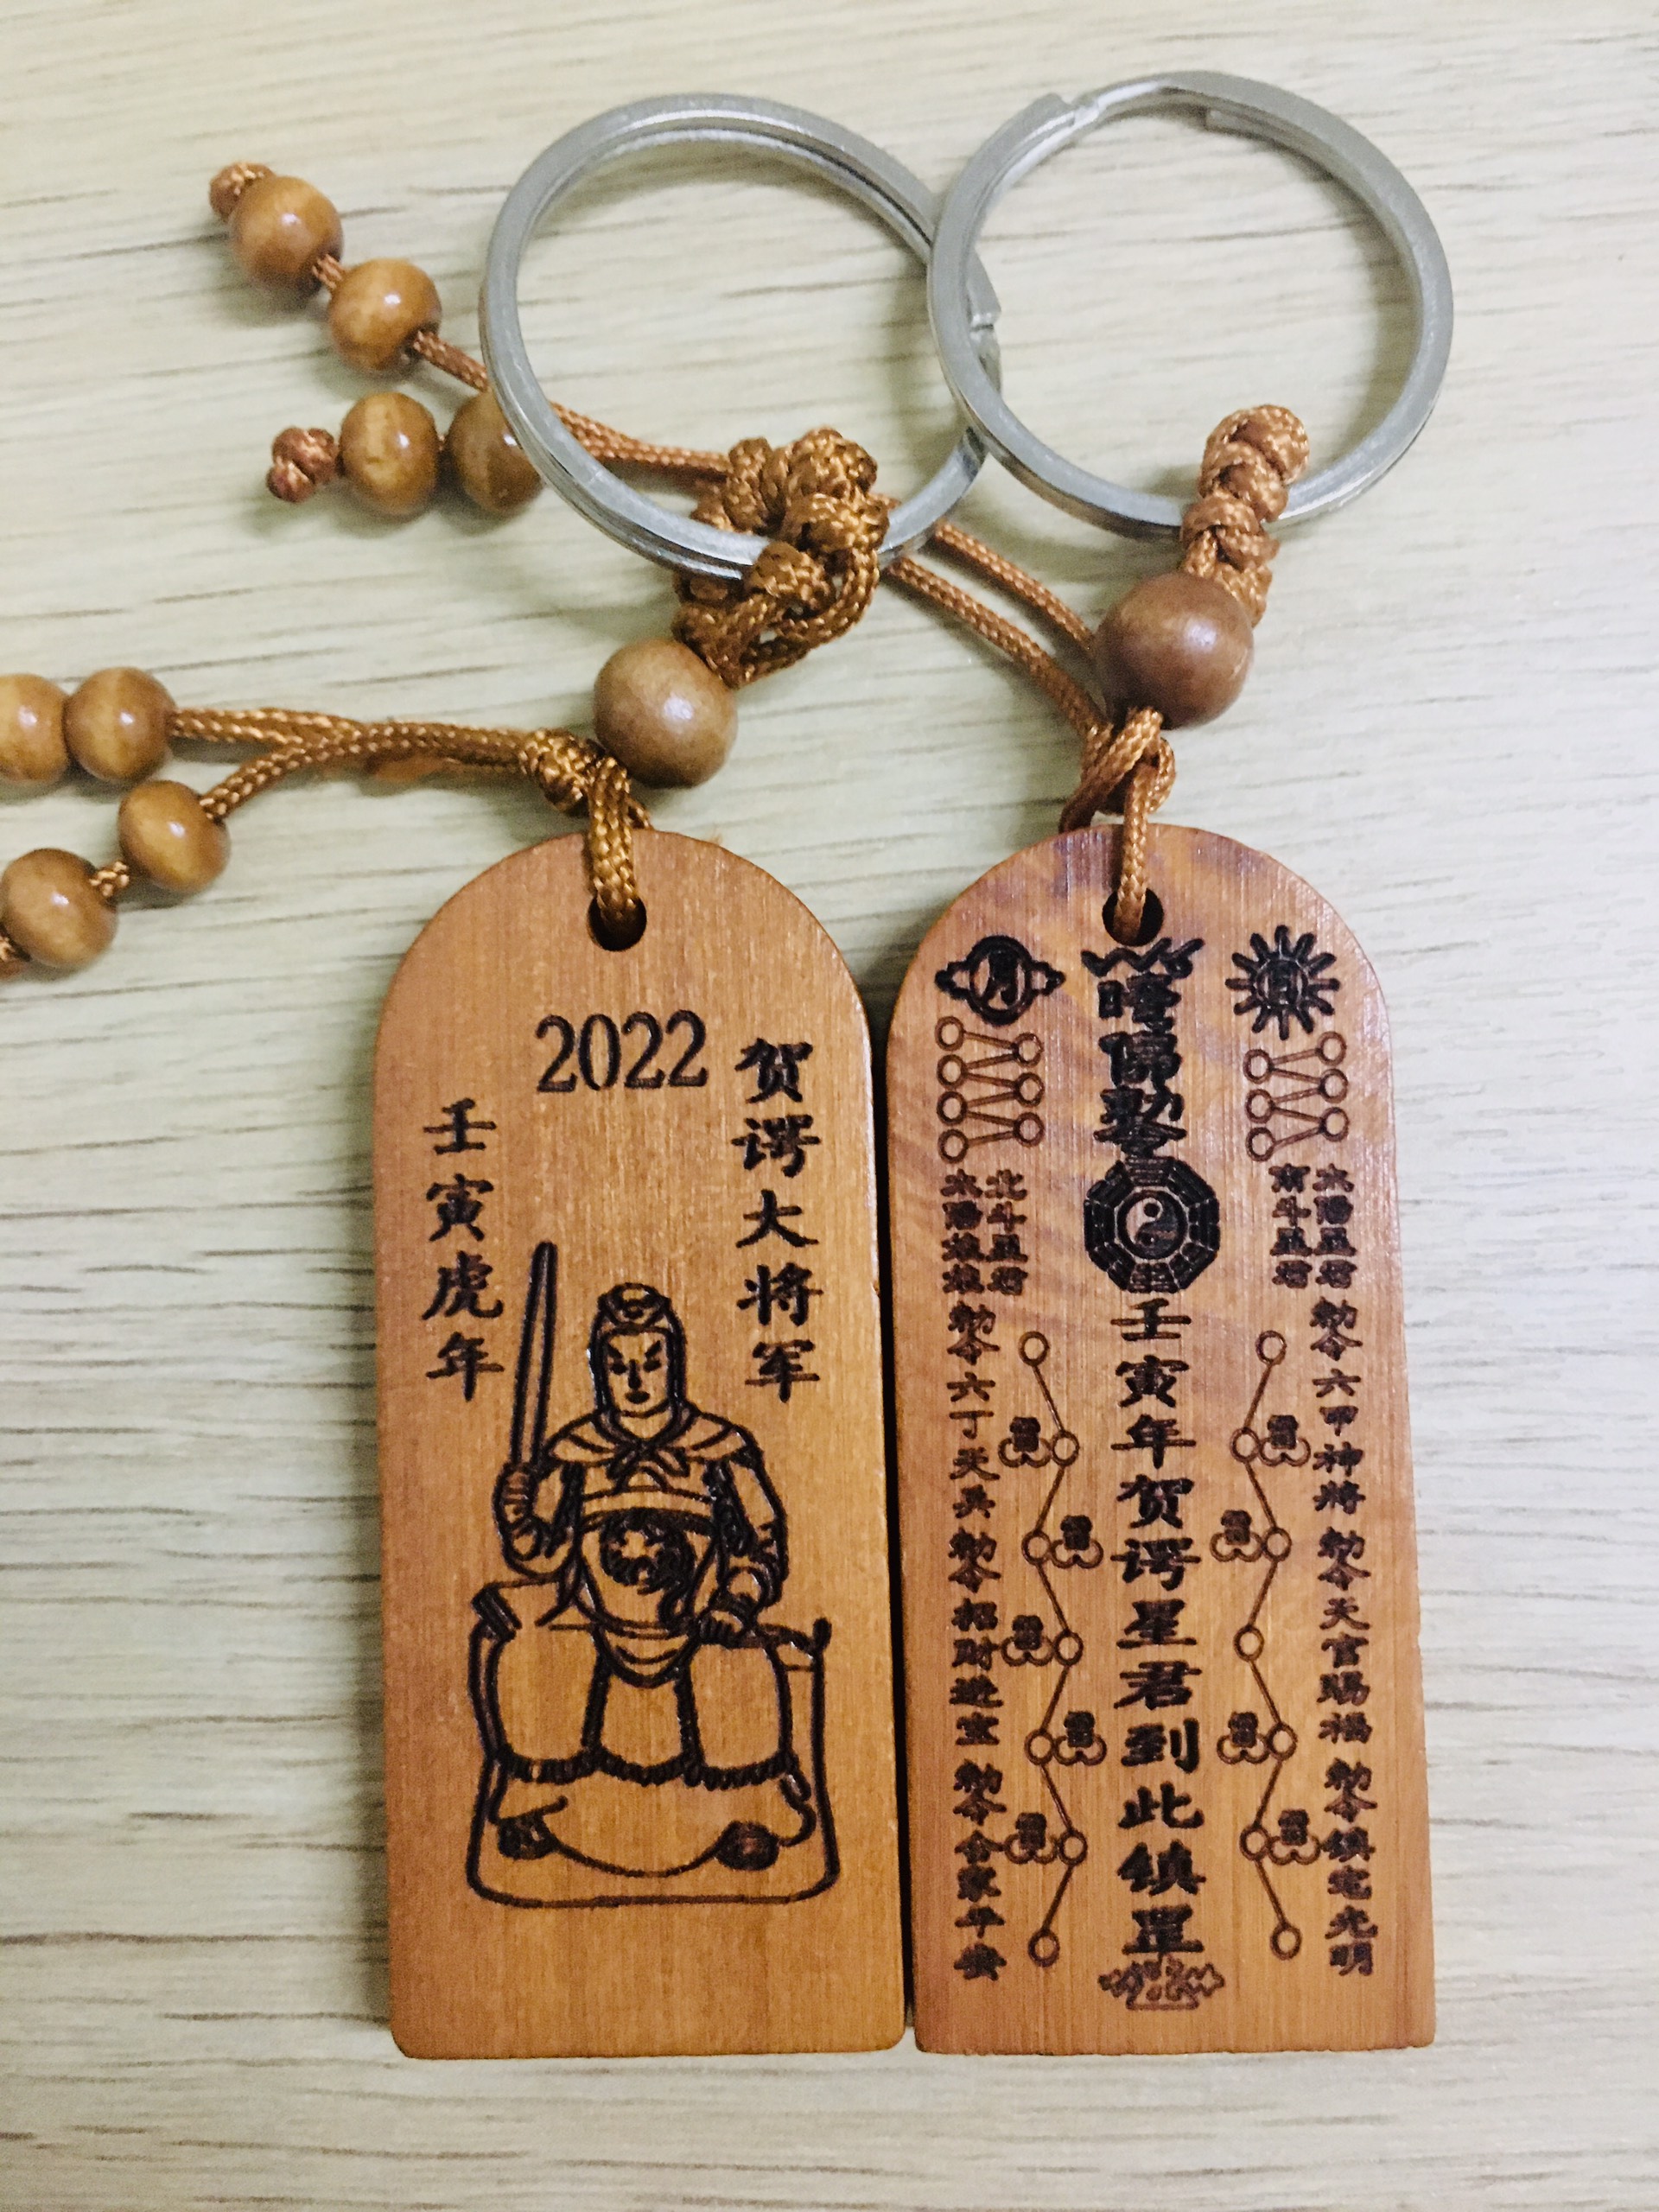 2022
贺谔大将军
壬寅虎年
日
月
太陽星君
南斗星君
北斗星君
勅令六甲神將
勅令天官賜福
勅令鎮宅光明
壬寅年贺谔星君到此鎮罡
勅令六丁天兵
勅令招財進宝
勅令合家平安